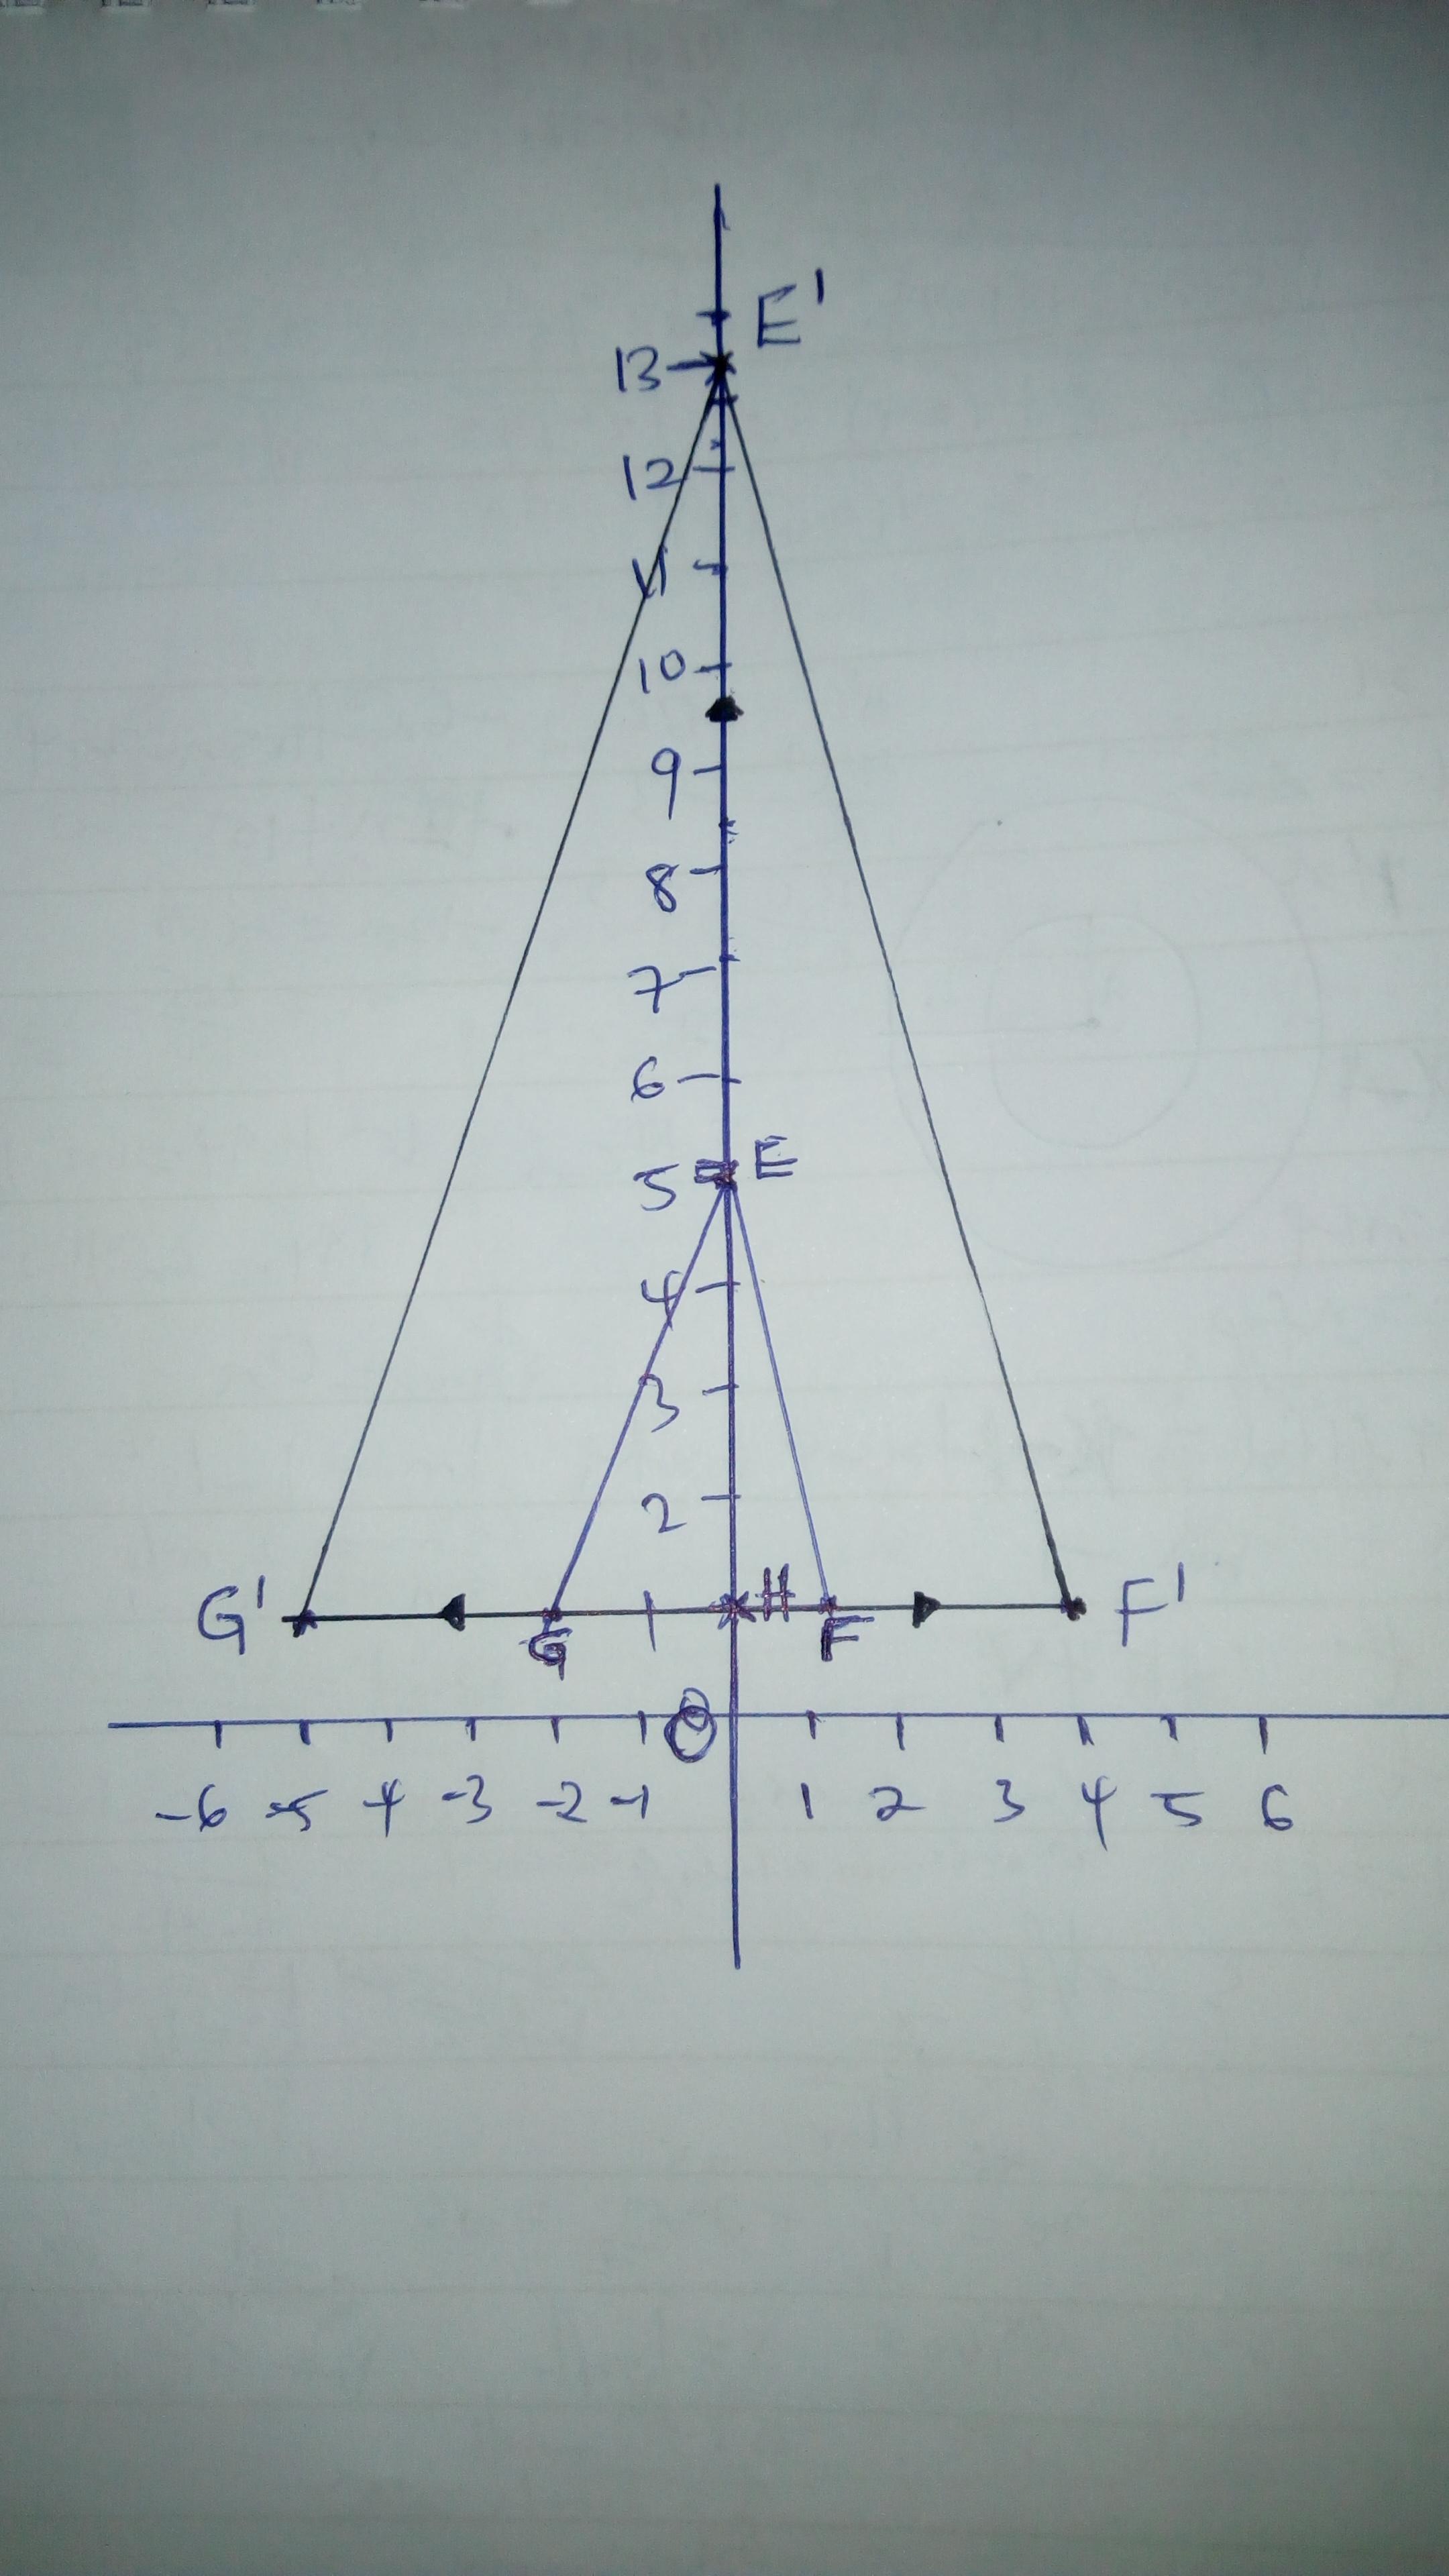 E'
13
12
11
10
9
8
7
6
5 E
4
3
2
G' 1 H F'
G F
O
-6 -5 -4 -3 -2 -1 1 2 3 4 5 6